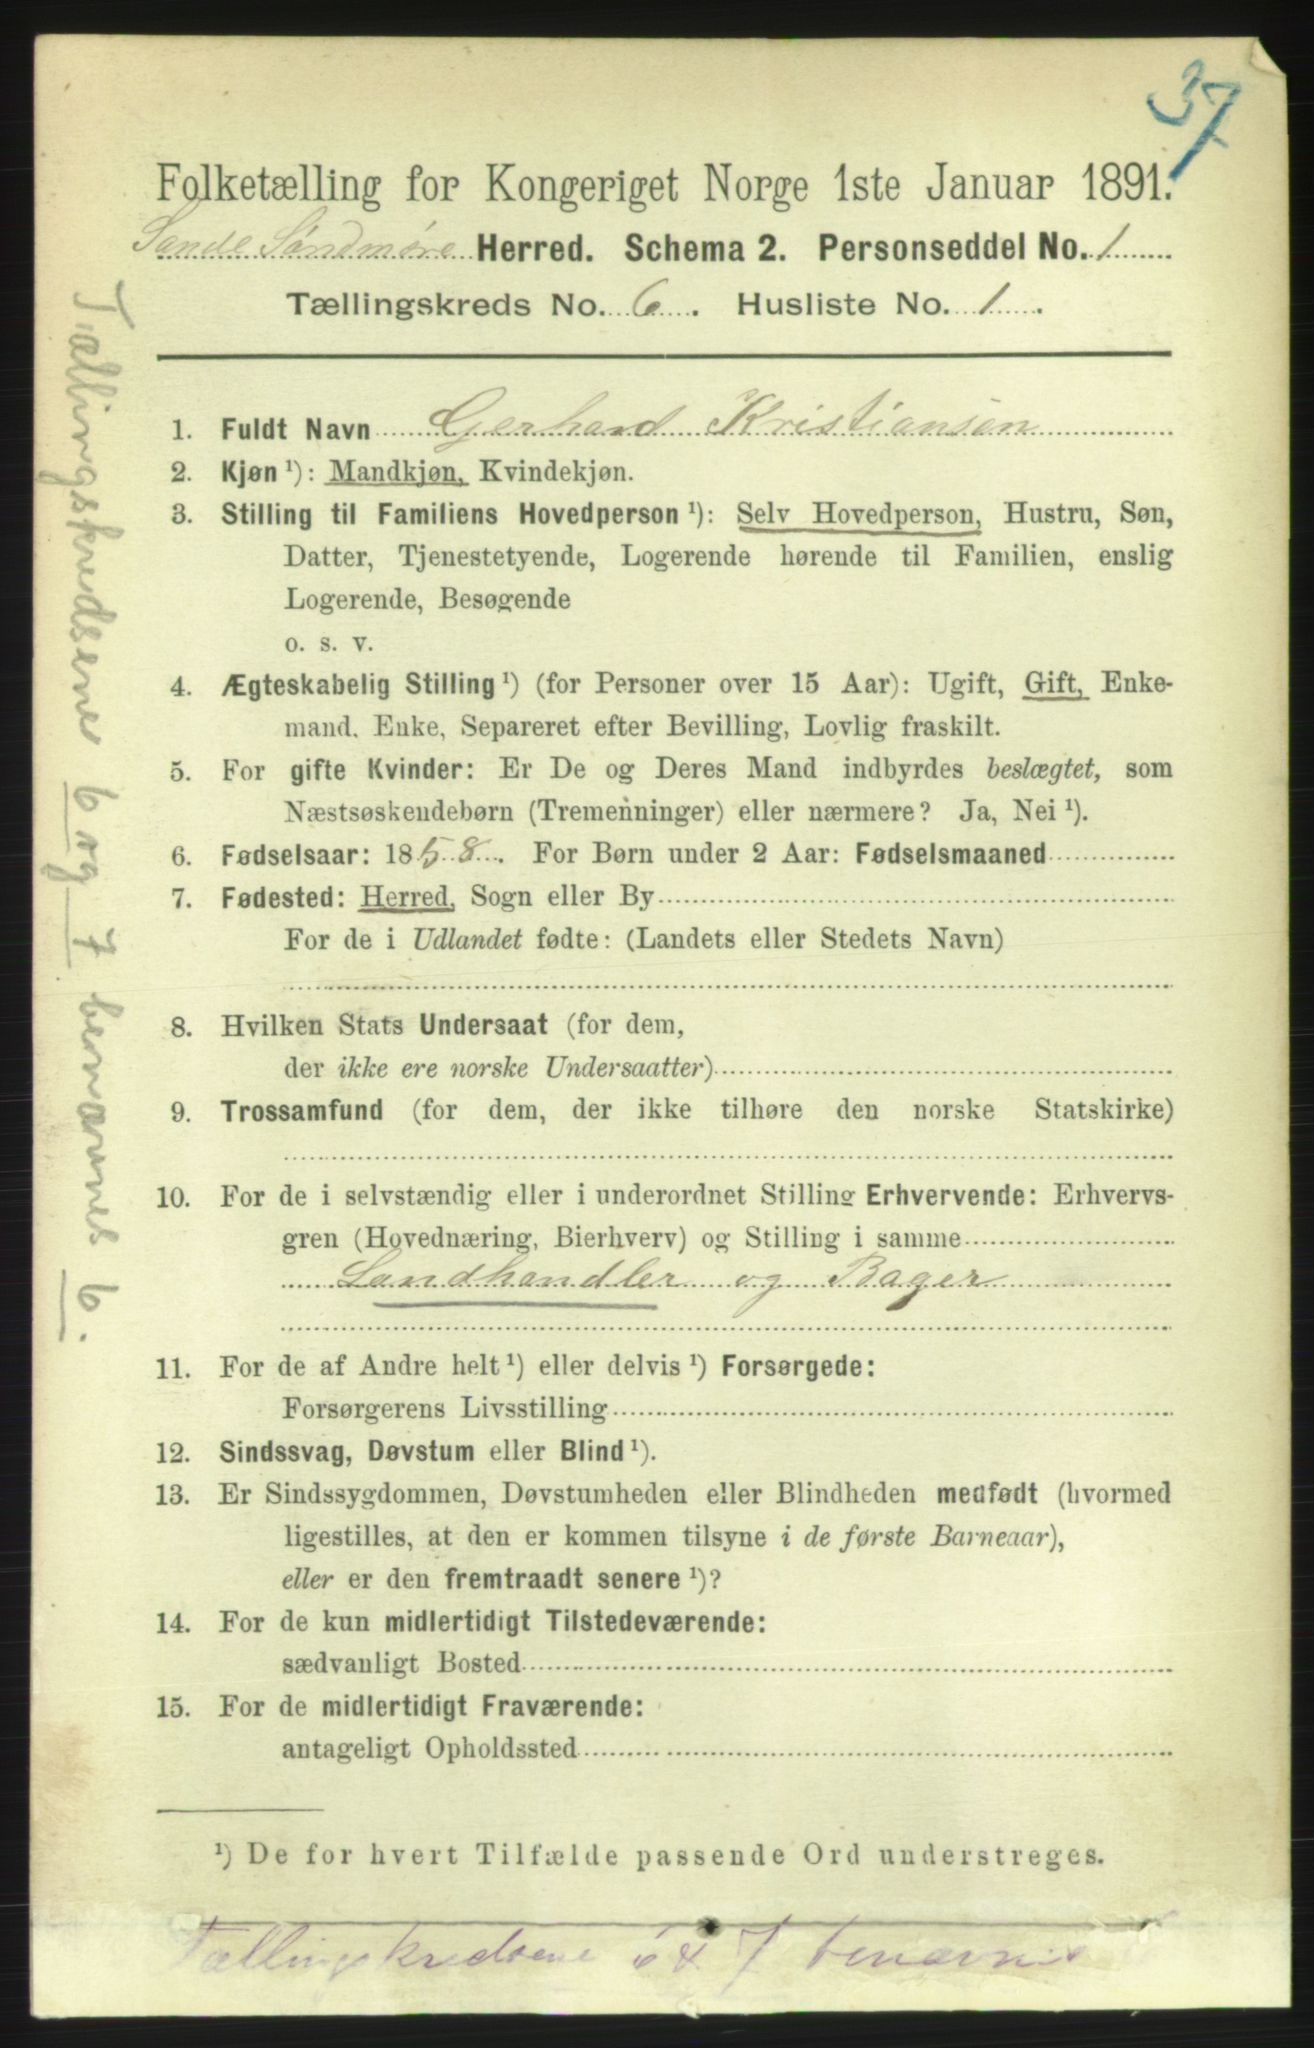 37
Folketælling for Kongeriget Norge 1ste Januar 1891.
Sande Søndmøre Herred. Schema 2. Personseddel No. 1
Tællingskreds No. 6. Husliste No. 1.
1. Fuldt Navn Gerhard Kristiansen
2. Kjøn¹): Mandkjøn, Kvindekjøn.
3. Stilling til Familiens Hovedperson¹): Selv Hovedperson, Hustru, Søn,
Datter, Tjenestetyende, Logerende hørende til Familien, enslig
Logerende, Besøgende
o. s. v.
4. Ægteskabelig Stilling¹) (for Personer over 15 Aar): Ugift, Gift, Enke-
mand, Enke, Separeret efter Bevilling, Lovlig fraskilt.
5. For gifte Kvinder: Er De og Deres Mand indbyrdes beslægtet, som
Næstsøskendebørn (Tremenninger) eller nærmere? Ja, Nei¹).
6. Fødselsaar: 1858. For Børn under 2 Aar: Fødselsmaaned
7. Fødested: Herred, Sogn eller By
For de i Udlandet fødte: (Landets eller Stedets Navn)
8. Hvilken Stats Undersaat (for dem,
der ikke ere norske Undersaatter)
9. Trossamfund (for dem, der ikke tilhøre den norske Statskirke)
10. For de i selvstændig eller i underordnet Stilling Erhvervende: Erhvervs-
gren (Hovednæring, Bierhverv) og Stilling i samme
Landhandler og Bager
11. For de af Andre helt¹) eller delvis¹) Forsørgede:
Forsørgerens Livsstilling
12. Sindssvag, Døvstum eller Blind¹).
13. Er Sindssygdommen, Døvstumheden eller Blindheden medfødt (hvormed
ligestilles, at den er kommen tilsyne i de første Barneaar),
eller er den fremtraadt senere¹)?
14. For de kun midlertidigt Tilstedeværende:
sædvanligt Bosted
15. For de midlertidigt Fraværende:
antageligt Opholdssted
¹) De for hvert Tilfælde passende Ord understreges.
Tællingskredsene 6 & 7 benævnes
Tællingskredsene 6 og 7 benævnes 6.